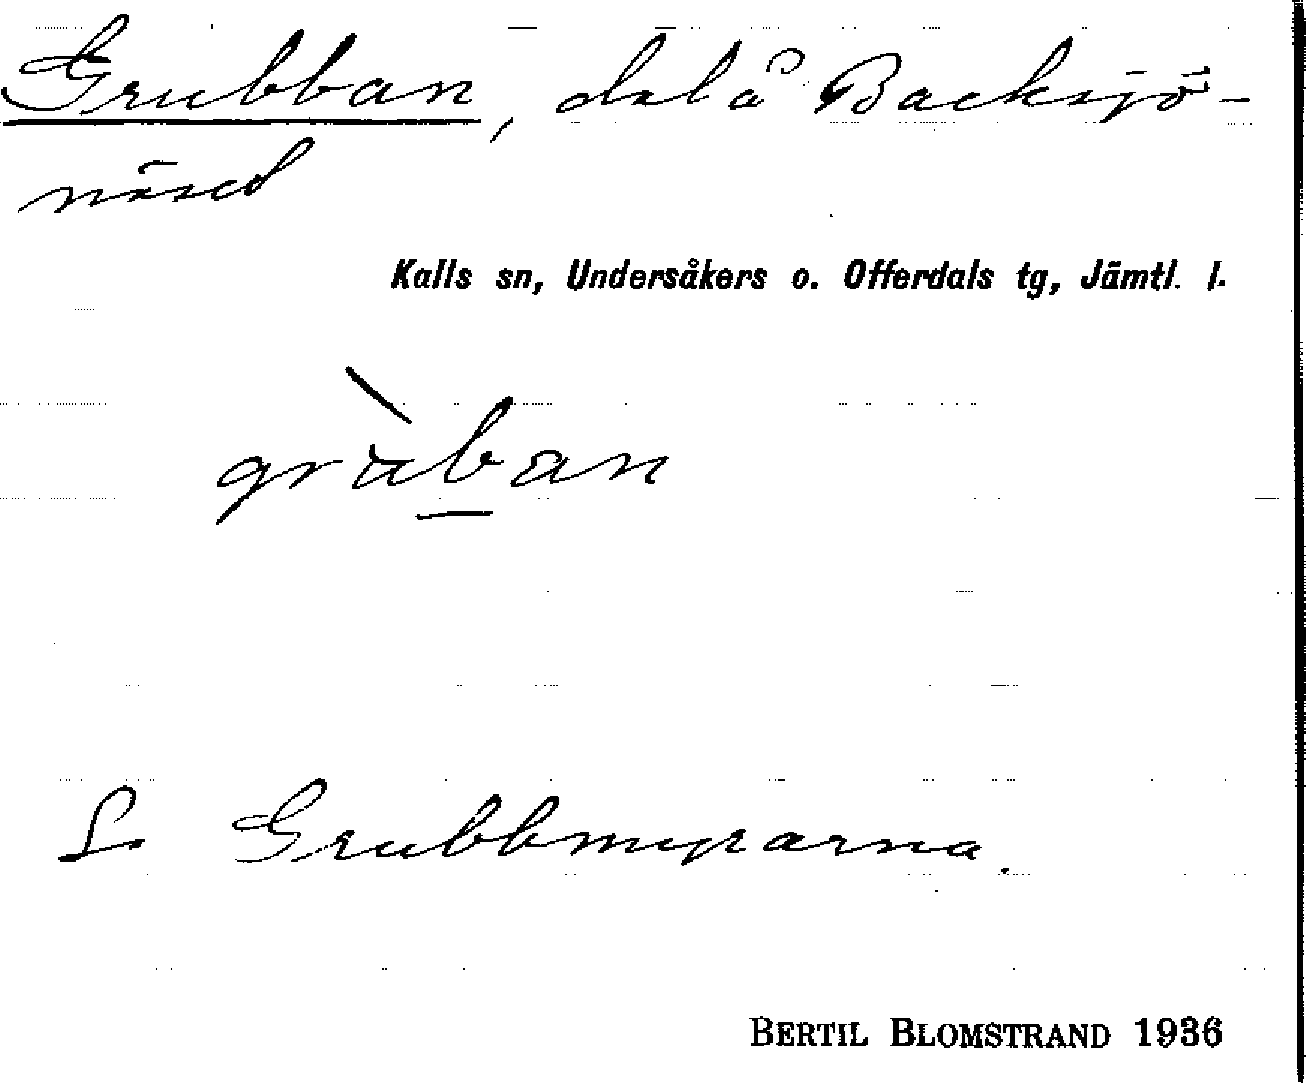 Grubban, del å Backsjö-
näset
Kalls sn, Undersåkers o. Offerdals tg, Jämtl. l.
gru̇̀b̲an
S. Grubbmyrarna.
BERTIL BLOMSTRAND 1936